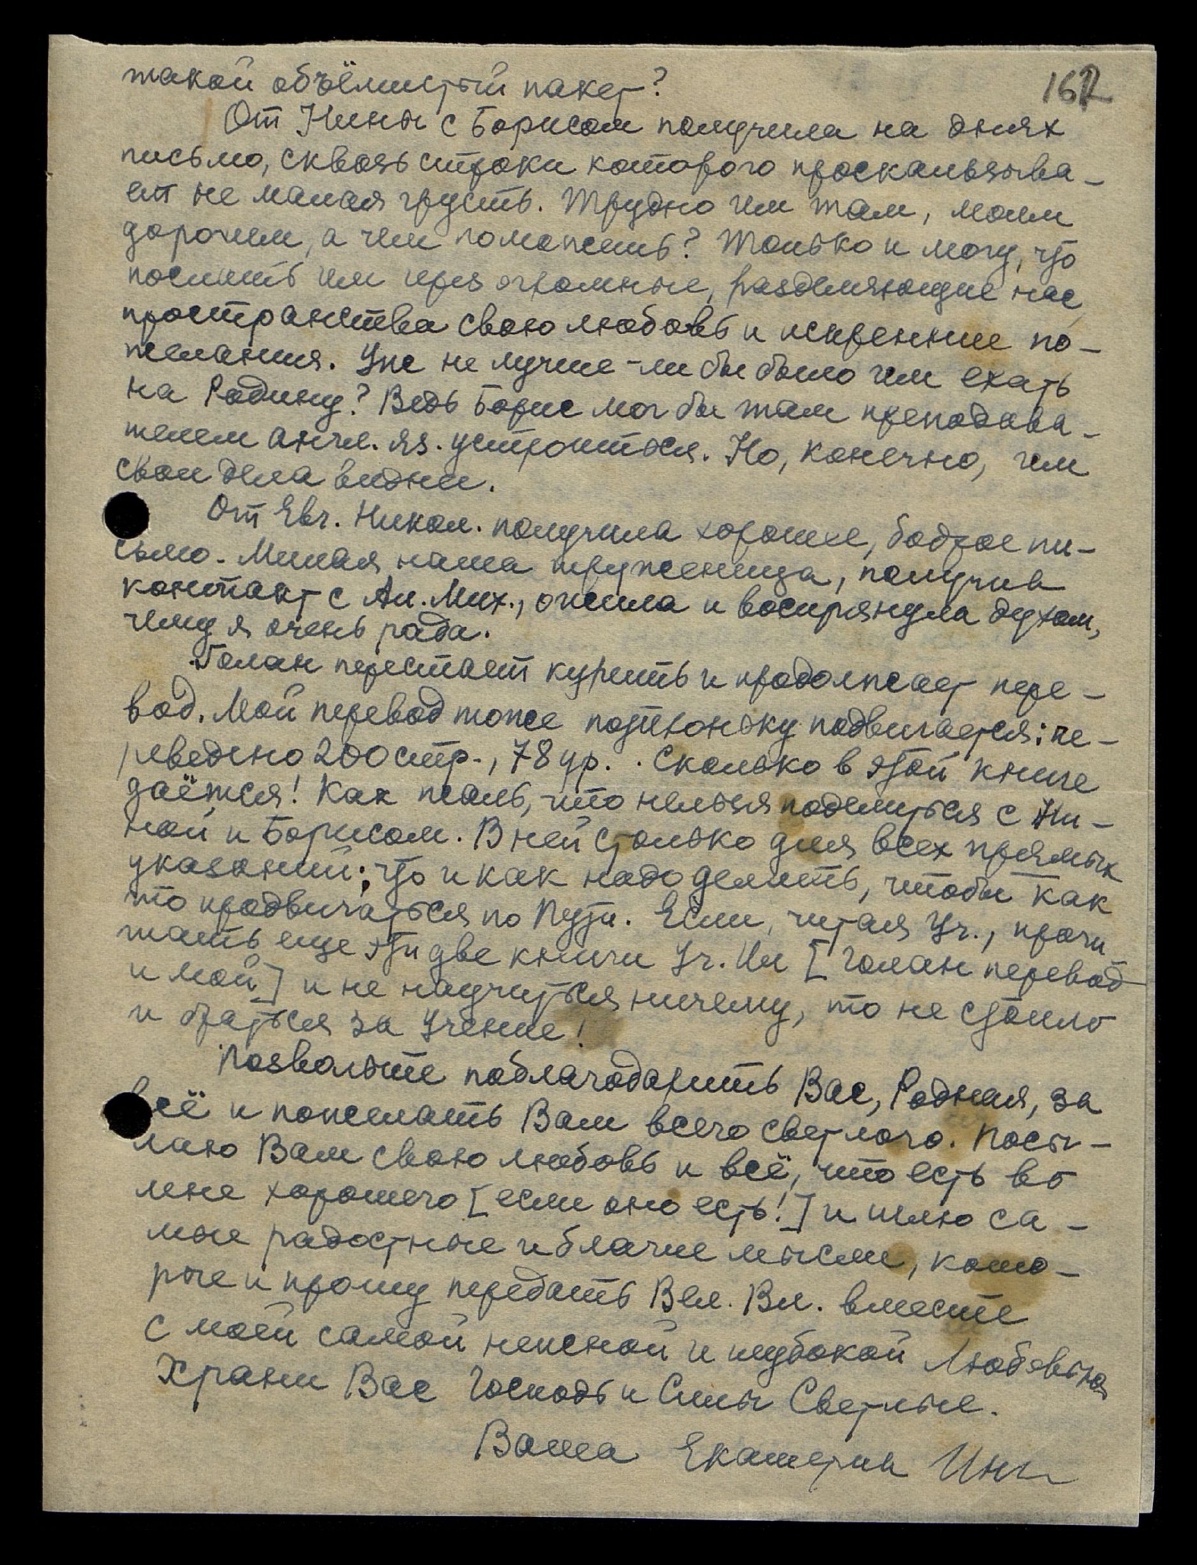 162
такой объёмистый пакет?
От Нины с Борисом получила на днях
письмо, сквозь строки которого проскальзыва-
ет не малая грусть. Трудно им там, моим
дорогим, а чем поможешь? Только и могу, что
послать им через огромные, разделяющие нас
пространства свою любовь и искренние по-
желания. Уж не лучше-ли бы было им ехать
на Родину? Ведь Борис мог бы там преподава-
телем англ. яз. устроиться. Но, конечно, им
свои дела видней.
От Евг. Никол. получила хорошее, бодрое пи-
сьмо. Милая наша труженица, получив
контакт с Ал. Мих., ожила и воспрянула духом,
чему я очень рада.
Голан перестаёт курить и продолжает пере-
вод. Мой перевод тоже потихоньку подвигается: пе-
реведено 200 стр., 78 ур. Сколько в этой книге
даётся! Как жаль, что нельзя поделиться с Ни-
ной и Борисом. В ней столько для всех прямых
указаний; что и как надо делать, чтобы как
то продвигаться по Пути. Если, читая Уч., прочи
тать еще эти две книги Уч. Им [Голан перевод
и мой] и не научиться ничему, то не стоило
и браться за Учение!
Позвольте поблагодарить Вас, Родная, за
всё и пожелать Вам всего светлого. Посы-
лаю Вам свою любовь и всё, что есть во
мне хорошего [если оно есть!] и шлю са-
мые радостные и благие мысли, кото-
рые и прошу передать Вел. Вл. вместе
с моей самой нежной и глубокой Любовью
Храни Вас Господь и Силы Светлые.
Ваша Екатерина Инг